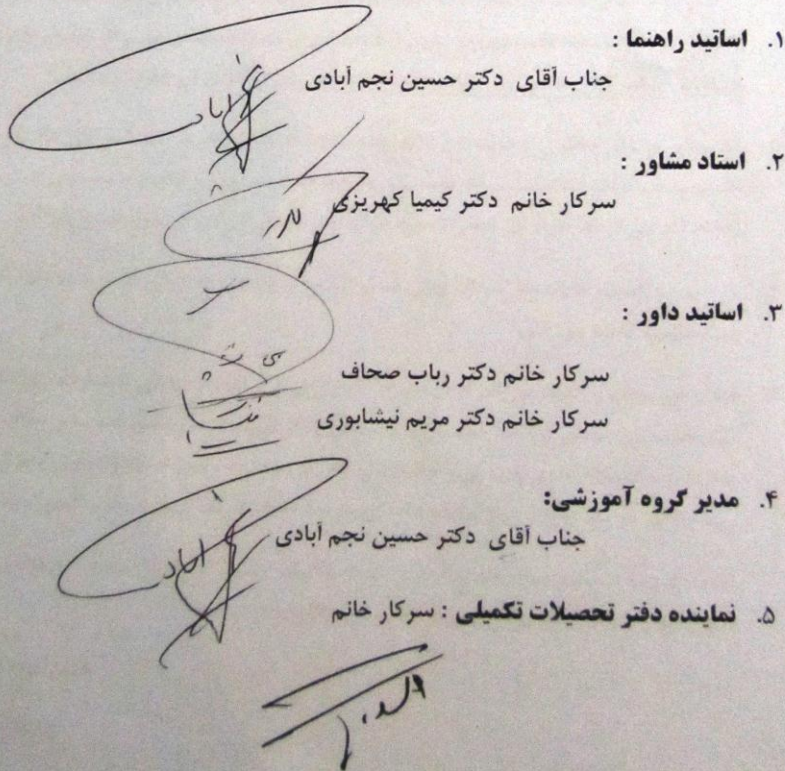 ۱. اساتید راهنما :
جناب آقای دکتر حسین نجم آبادی
۲. استاد مشاور :
سرکار خانم دکتر کیمیا کهریزی
۳. اساتید داور :
سرکار خانم دکتر رباب صحاف
سرکار خانم دکتر مریم نیشابوری
۴. مدیر گروه آموزشی:
جناب آقای دکتر حسین نجم آبادی
۵. نماینده دفتر تحصیلات تکمیلی : سرکار خانم